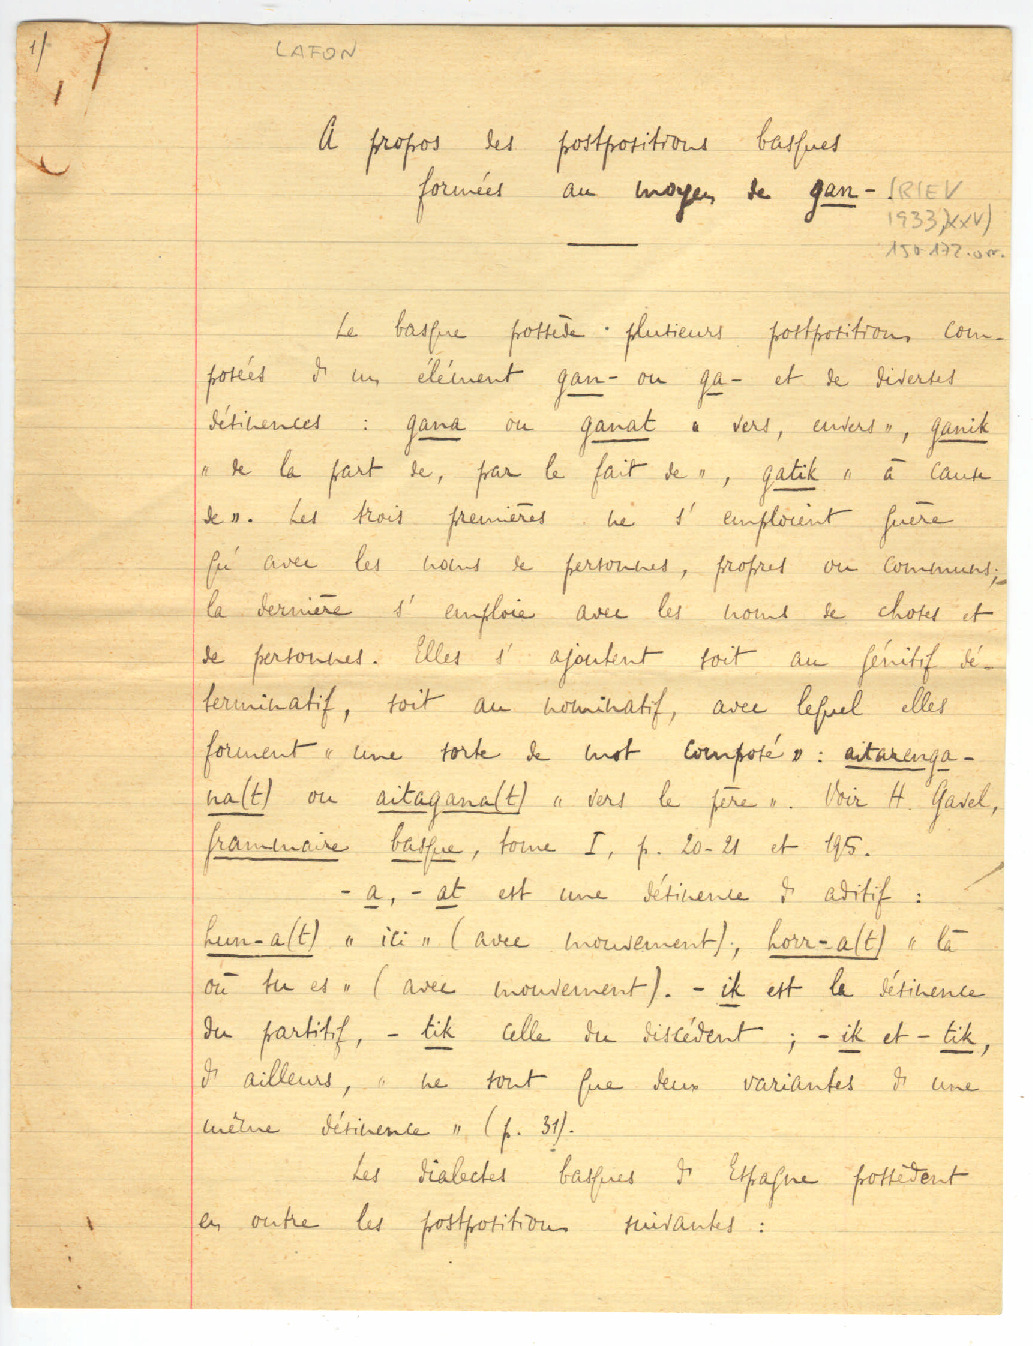 1/
LAFON
A propos des postpositions basques
formées au moyen de gan-
(RIEV
1933, XXV)
150-172.orr.
Le basque possède plusieurs postpositions com-
posées d'un élément gan- ou ga- et de diverses
désinences : gana ou ganat « vers, envers », ganik
« de la part de, par le fait de », gatik « à cause
de ». Les trois premières ne s'emploient guère
qu'avec les noms de personnes, propres ou communs;
la dernière s'emploie avec les noms de choses et
de personnes. Elles s'ajoutent soit au génitif dé-
terminatif, soit au nominatif, avec lequel elles
forment « une sorte de mot composé » : aitarenga-
na(t) ou aitagana(t) « vers le père ». Voir H. Gavel,
grammaire basque, tome I, p. 20-21 et 195.
- a, - at est une désinence d'aditif :
hun-a(t) « ici » (avec mouvement); horr-a(t) « là
où tu es » (avec mouvement). - ik est la désinence
du partitif, - tik celle du discédent ; - ik et - tik,
d'ailleurs, « ne sont que deux variantes d'une
même désinence » (p. 31).
Les dialectes basques d'Espagne possèdent
en outre les postpositions suivantes :